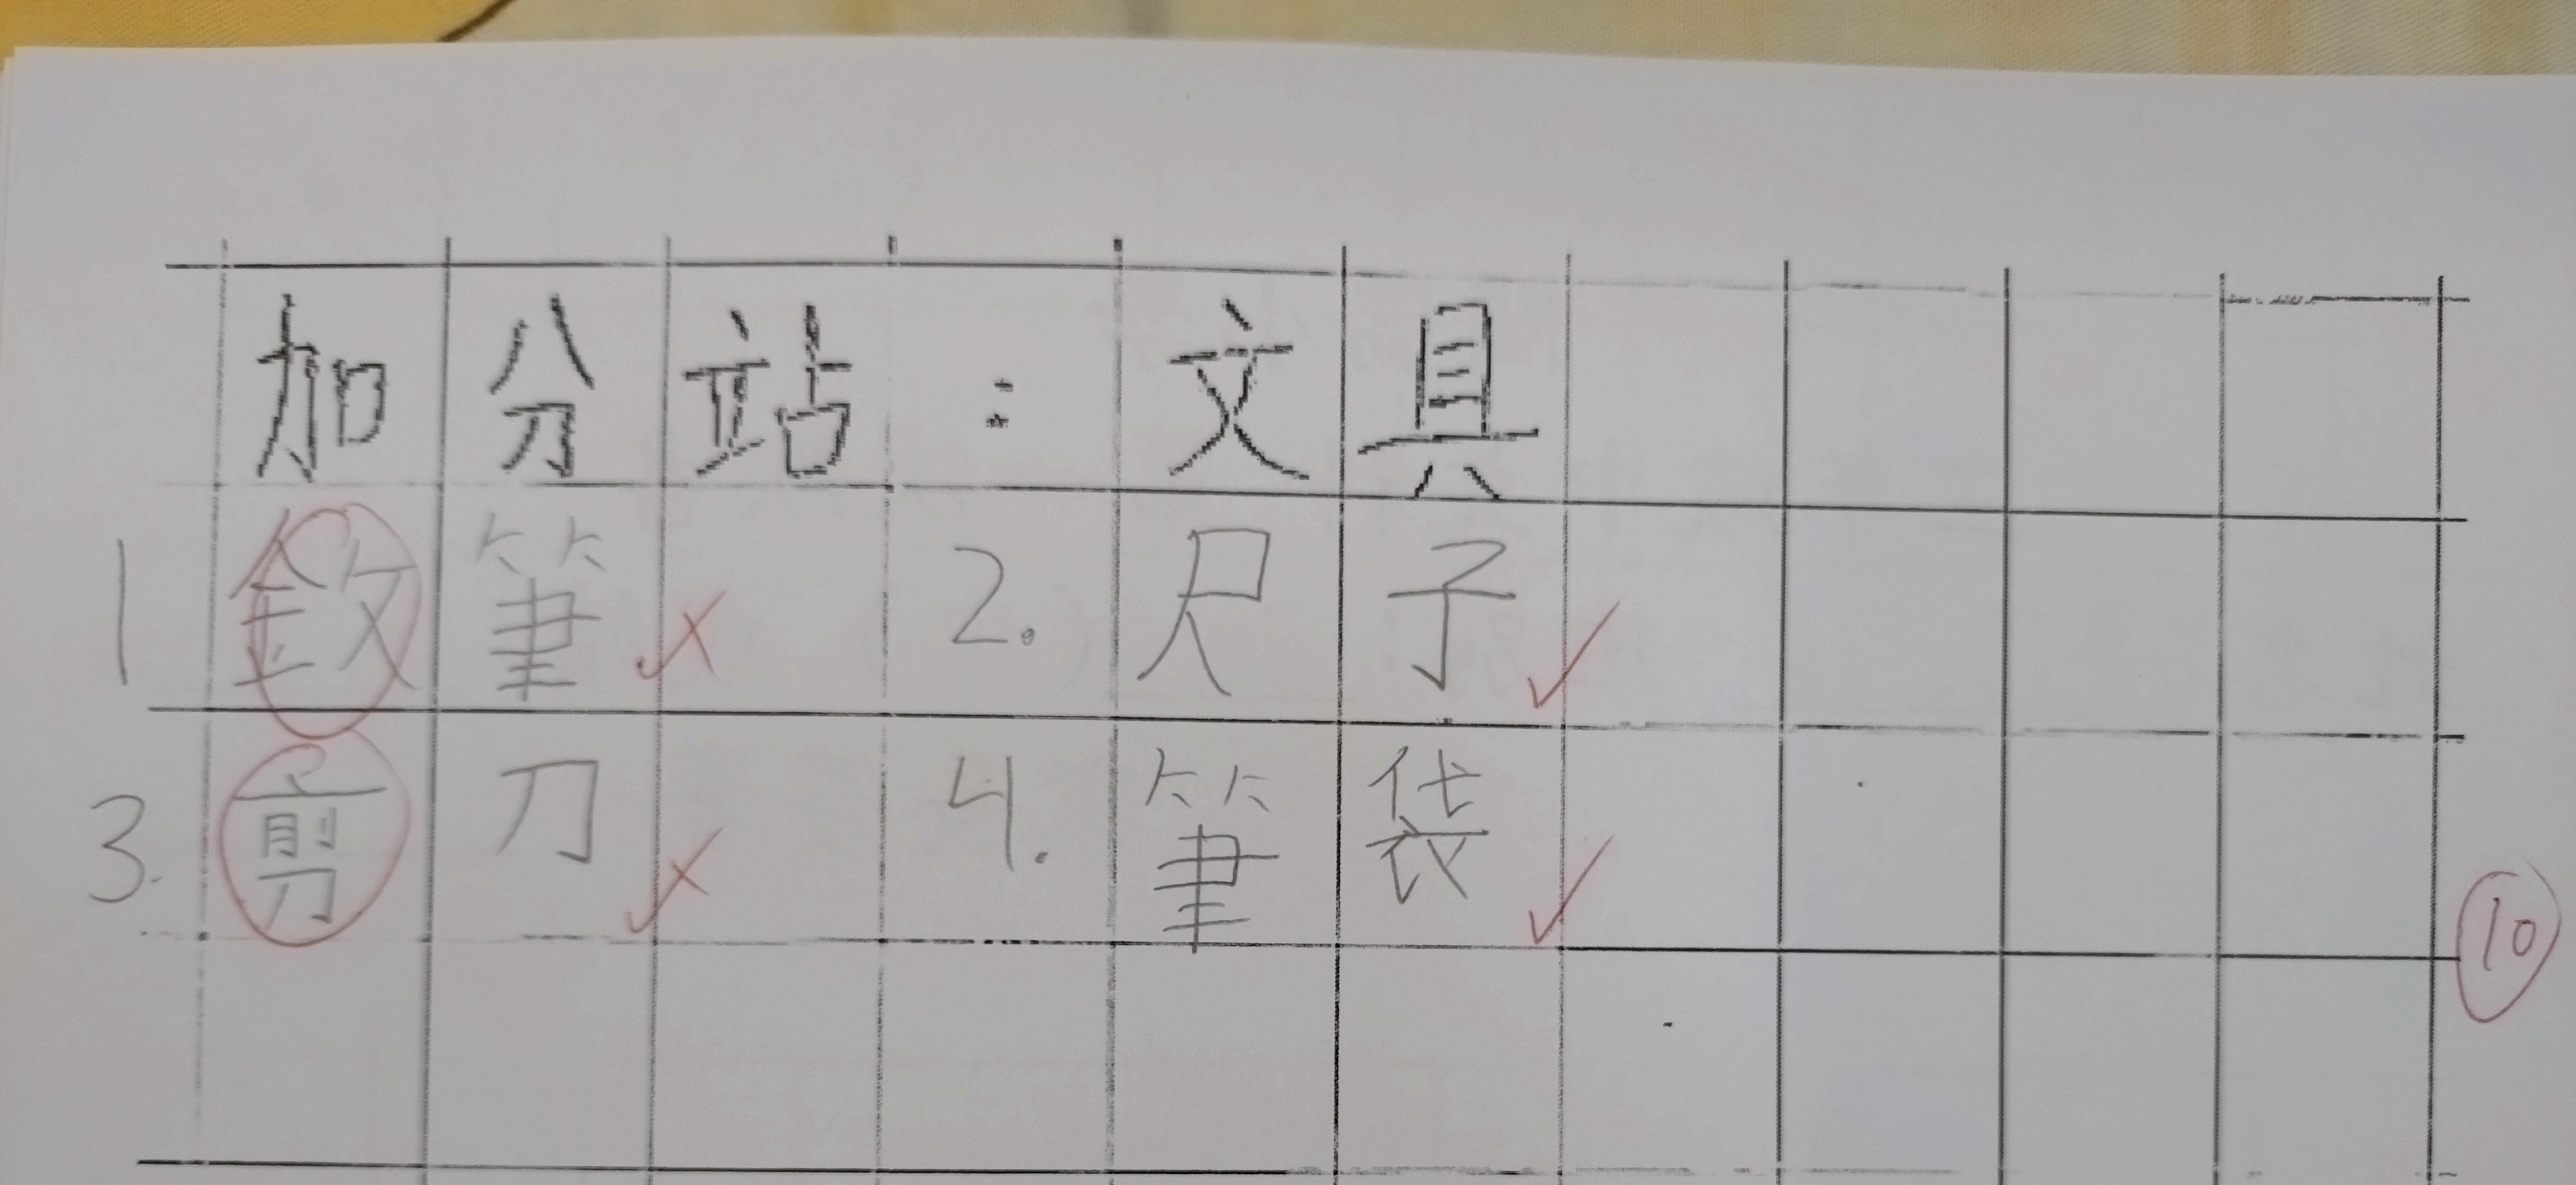 加分站：文具
1 筆 2. 尺子
3. 剪刀 4. 筆袋
10